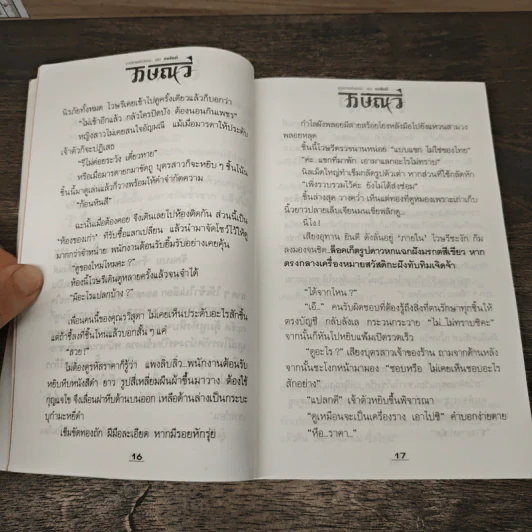 วิษณุวี
นิรภัยทั้งหมด ไวษรีเคยเข้าไปดูครั้งเดียวแล้วก็บอกว่า
"ไม่เข้าอีกแล้ว กลัวใครปิดขัง ต้องนอนกินเพชร"
หญิงสาวไม่เคยสนใจอัญมณี แม้เมื่อมารดาให้ประดับ
เจ้าตัวก็จะปฏิเสธ
"รีไม่ค่อยระวัง เดี๋ยวหาย"
หรือเมื่อมารดายกมาชัดถู บุตรสาวก็จะหยิบ ๆ ชิ้นโน้น
ชิ้นนี้มาดูเล่นแล้วก็วางพร้อมให้คำจำกัดความ
"ก้อนหินสี"
ฉะนั้นเมื่อต้องคอย จึงเดินเลยไปห้องติดกัน ส่วนนี้เป็น
"ห้องของเก่า" ที่รับซื้อแลกเปลี่ยน แล้วนำมาจัดโชว์ไว้ให้ดู
มากกว่าจำหน่าย พนักงานต้อนรับยิ้มรับอย่างเคยคุ้น
"ดูของใหม่ไหมคะ ?"
ห้องนี้ไวษรีเดินดูหลายครั้งแล้วจนจำได้
"มีอะไรแปลกบ้าง ?"
เพื่อนคนนี้ของคุณรวิสุดา ไม่เคยเห็นประดับอะไรสักชิ้น
แต่ถ้าซื้อลงที่ชิ้นไหนแล้วบอกสั้น ๆ แค่
"สวย!"
ไม่ต้องดูรหัสราคาก็รู้ว่า แพงลิบลิ่ว พนักงานต้อนรับ
หยิบหีบหนังสีดำ ยาว รูปสี่เหลี่ยมผืนผ้าขึ้นมาวาง ต้องใช้
กุญแจไข จึงเลื่อนฝาหีบด้านบนออก เหลือด้านล่างเป็นกระบะ
บุกำมะหยี่ดำ
เข็มขัดทองถัก ฝีมือละเอียด หากมีรอยหักรุ่ย
16
วิษณุวี
กำไลฝังพลอยมีสายสร้อยโยงหลังมือไปยังแหวนสามวง
พลอยหลุด
ชิ้นนี้ไวษรีตรวจนานหน่อย "แบบแขก ไม่ใช่ของไทย"
"ค่ะ แขกที่มาพัก เอามาแลกอะไรไม่ทราบ"
นิลเม็ดใหญ่ทำเข็มกลัดรูปตัวเต่า หากส่วนที่ใช้กลัดหัก
"เพิ่งรวบรวมไว้ค่ะ ยังไม่ได้ส่งซ่อม"
ชิ้นล่างสุด วางคว่ำ เห็นแค่ทองที่ดูหมองเพราะเก่าเก็บ
นิ้วยาวปลายเล็บเจียนมนเขี่ยพลิกดู..
นี่ไง.!
เสียงอุทาน ยินดี ดังลั่นอยู่ "ภายใน" ไวษรีชะงัก ก้ม
ลงมองจนชิด..ล็อคเก็ตรูปดาวหกแฉกฝังมรกตสีเขียว หาก
ตรงกลางเครื่องหมายสวัสดิกะฝังทับทิมเจิดจ้า
"ได้จากไหน ?"
"เอ๊.." คนรับผิดชอบที่ต้องรู้ถึงสิ่งที่ตนรักษาทุกชิ้นให้
ตรงบัญชี กลับลังเล กระวนกระวาย "ไม่..ไม่ทราบซิคะ"
จากนั้นก็หันไปหยิบแฟ้มเปิดรวดเร็ว
"ดูอะไร ?" เสียงบุตรสาวเจ้าของร้าน ถามจากด้านหลัง
จากนั้นชะโงกหน้ามามอง "ชอบหรือ ไม่เคยเห็นชอบอะไร
สักอย่าง"
"แปลกดี" เจ้าตัวหยิบขึ้นพิจารณา
"ดูเหมือนจะเป็นเครื่องราง เอาไปซิ" คำบอกง่ายดาย
"หือ..ราคา.."
17